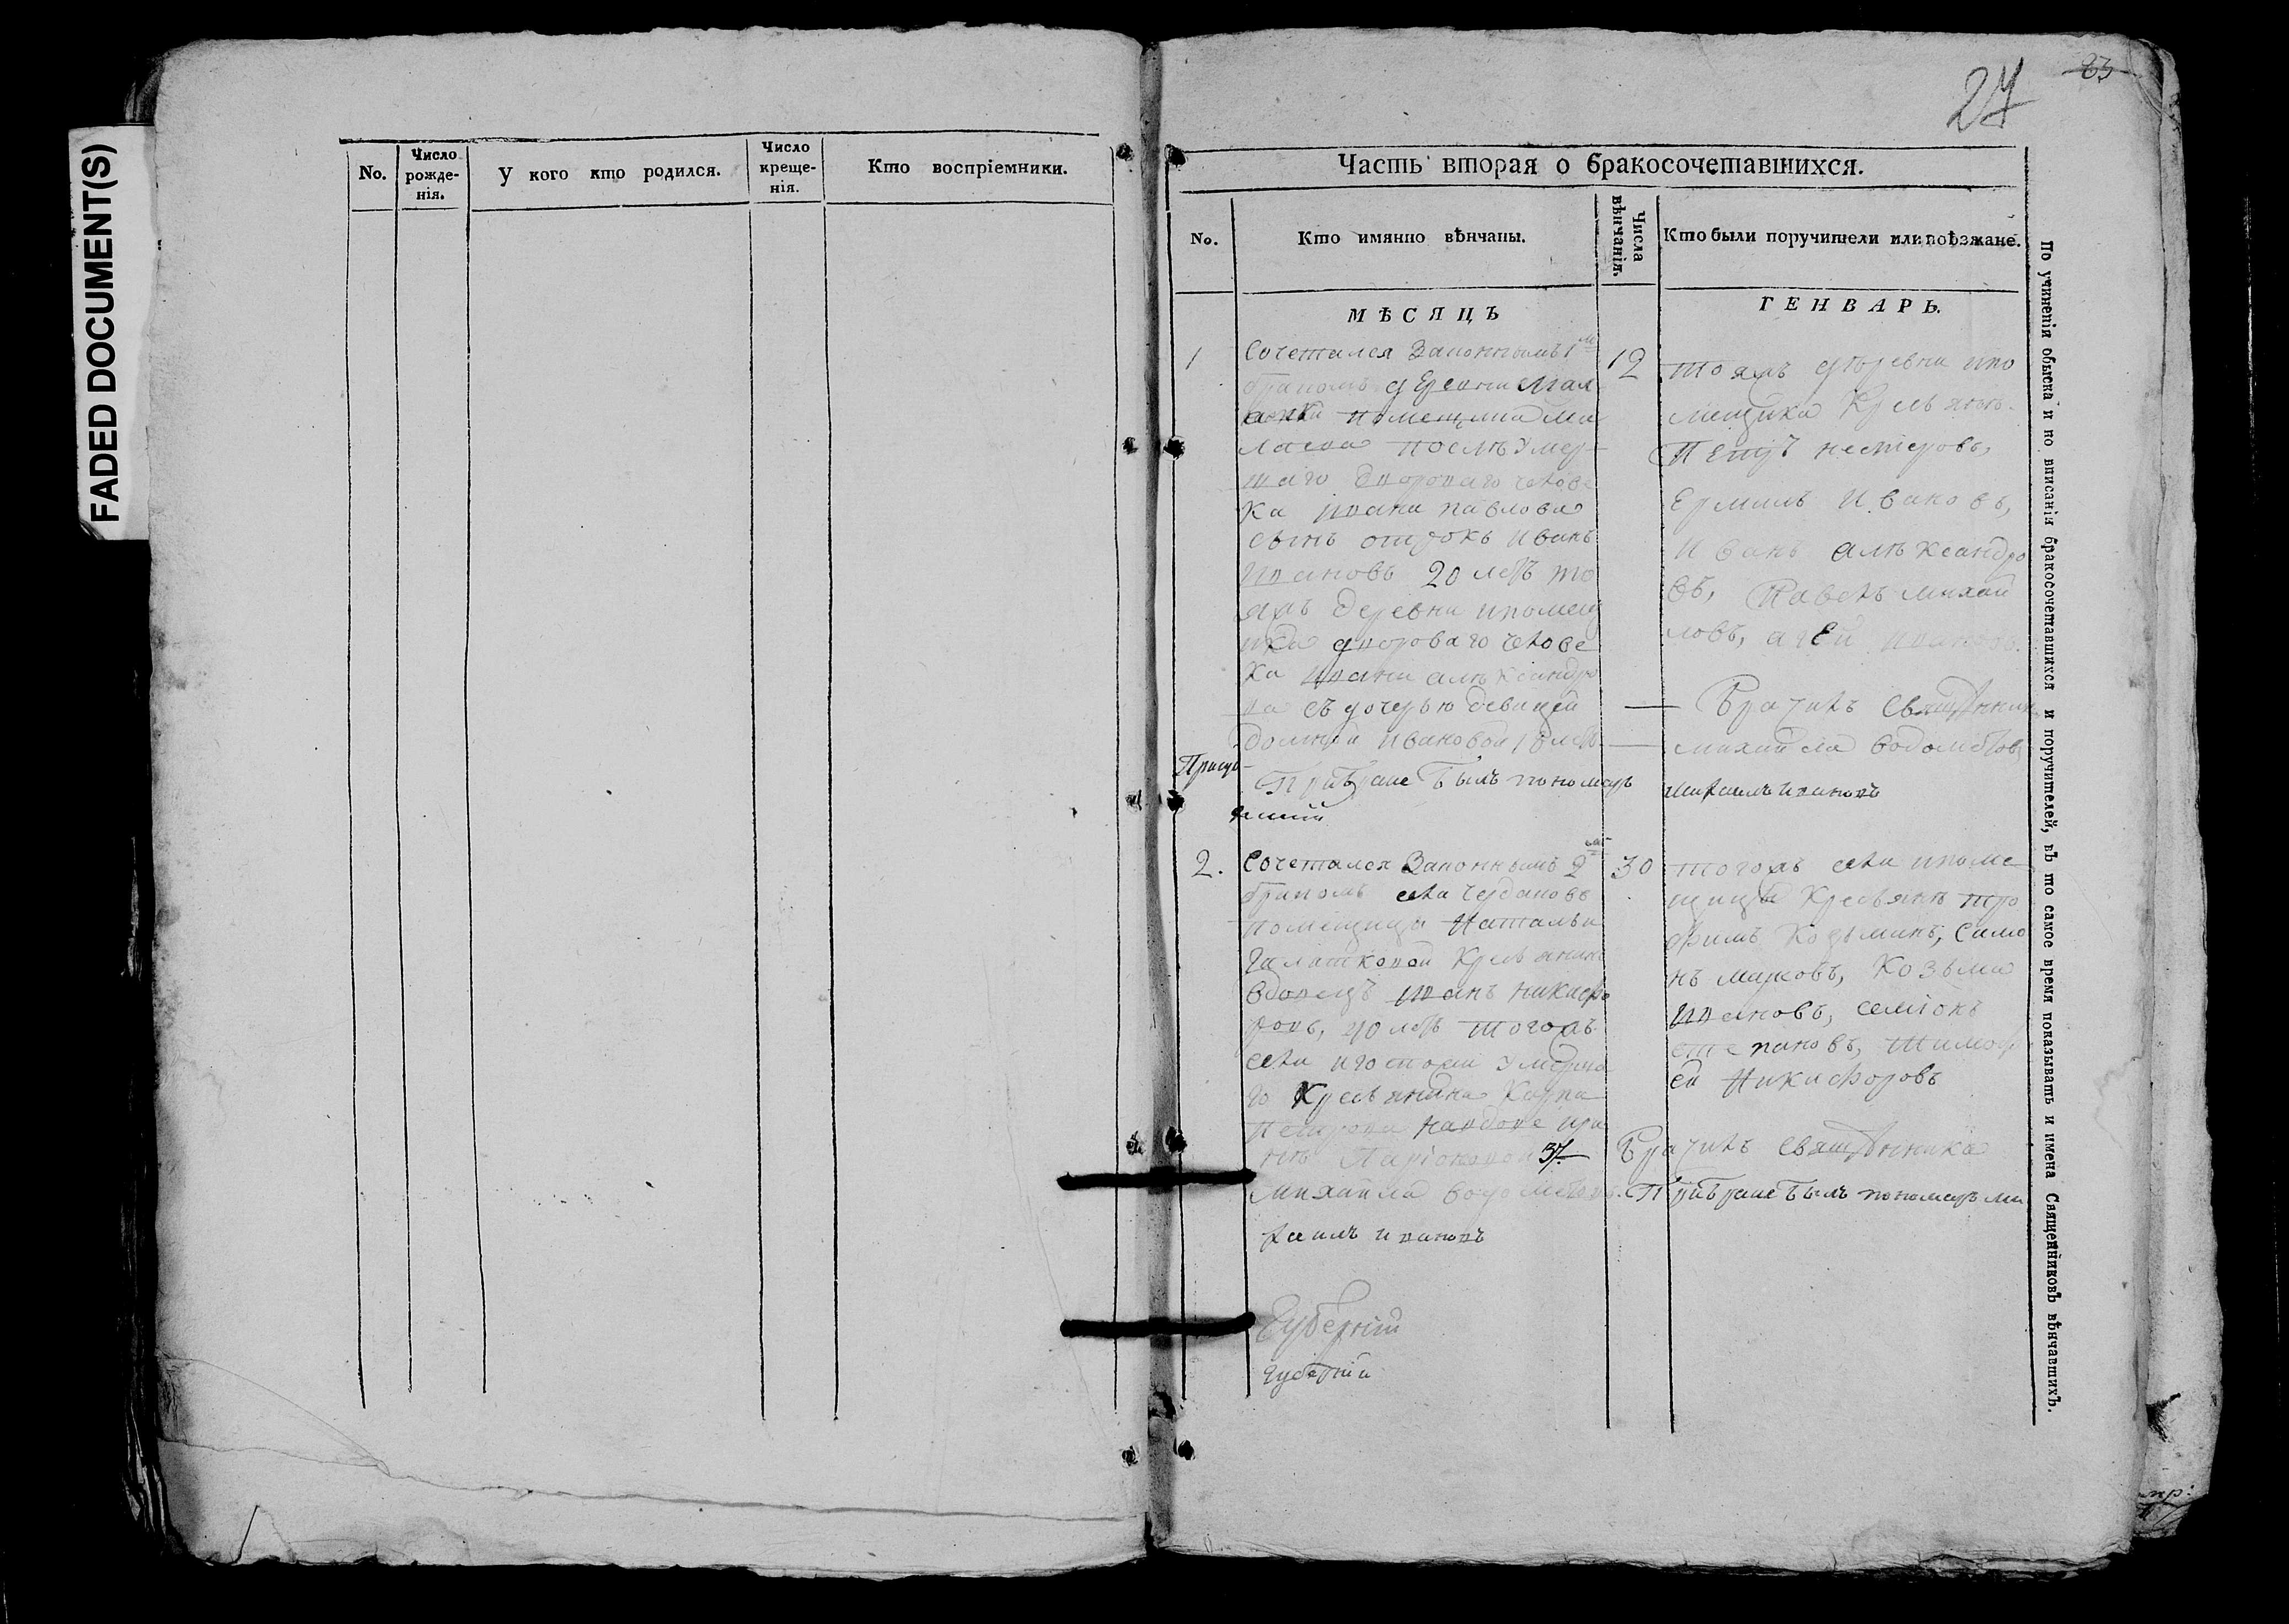 FADED DOCUMENT(S)
No.
Число рожде-нія.
У кого кто родился.
Число креще-нія.
Кто воспріемники.
27
23
Часть вторая о бракосочетавшихся.
No.
Кто имянно вѣнчаны.
Числа вѣнчанія.
Кто были поручители или поѣзжане.
МѢСЯЦЪ
ГЕНВАРЬ.
1
Сочетался Законнымъ 1м
бракомъ деревни
помещика
ла после умер
шаго двороваго челове
ка ивана павлова
сынъ отрокъ иванъ
ивановъ 20 летъ то
яжъ деревни и помещ
ика двороваго челове
ка ивана алѣксандро
ва съ дочерью девицей
домной ивановой 18 летъ
При браке былъ пономарь
12
тояжъ деревни и по
мещика Крестьяне
Петръ нестеровъ,
Ермилъ Ивановъ,
Иванъ алѣксандро
въ, Павелъ михай
ловъ, агей ивановъ.
Брачилъ священник
михаила
михаилъ ивановъ
2.
Сочетался Законнымъ 2м
бракомъ села
помещицы Натальи
Крестьянинъ
вдовецъ иванъ никифо
ровъ, 40 летъ тогожъ
села и госпожи умерша
го Крестьянина Карпа
Петрова на вдове ири
нѣ 37.
михаила
хаилъ ивановъ
30
тогожъ села и поме
щицы Крестьяне тро
фимъ Козьминъ, Симо
нъ марковъ, Козьма
Ивановъ, семіонъ
степановъ, тимоф
ей Никифоровъ
Брачилъ священника
При браке былъ пономарь ми
Губерніи
губерніи
По учиненіи обыска и по вписаніи бракосочетавшихся и поручителей, въ то самое время показывать и имена Священниковъ вѣнчавшихъ.